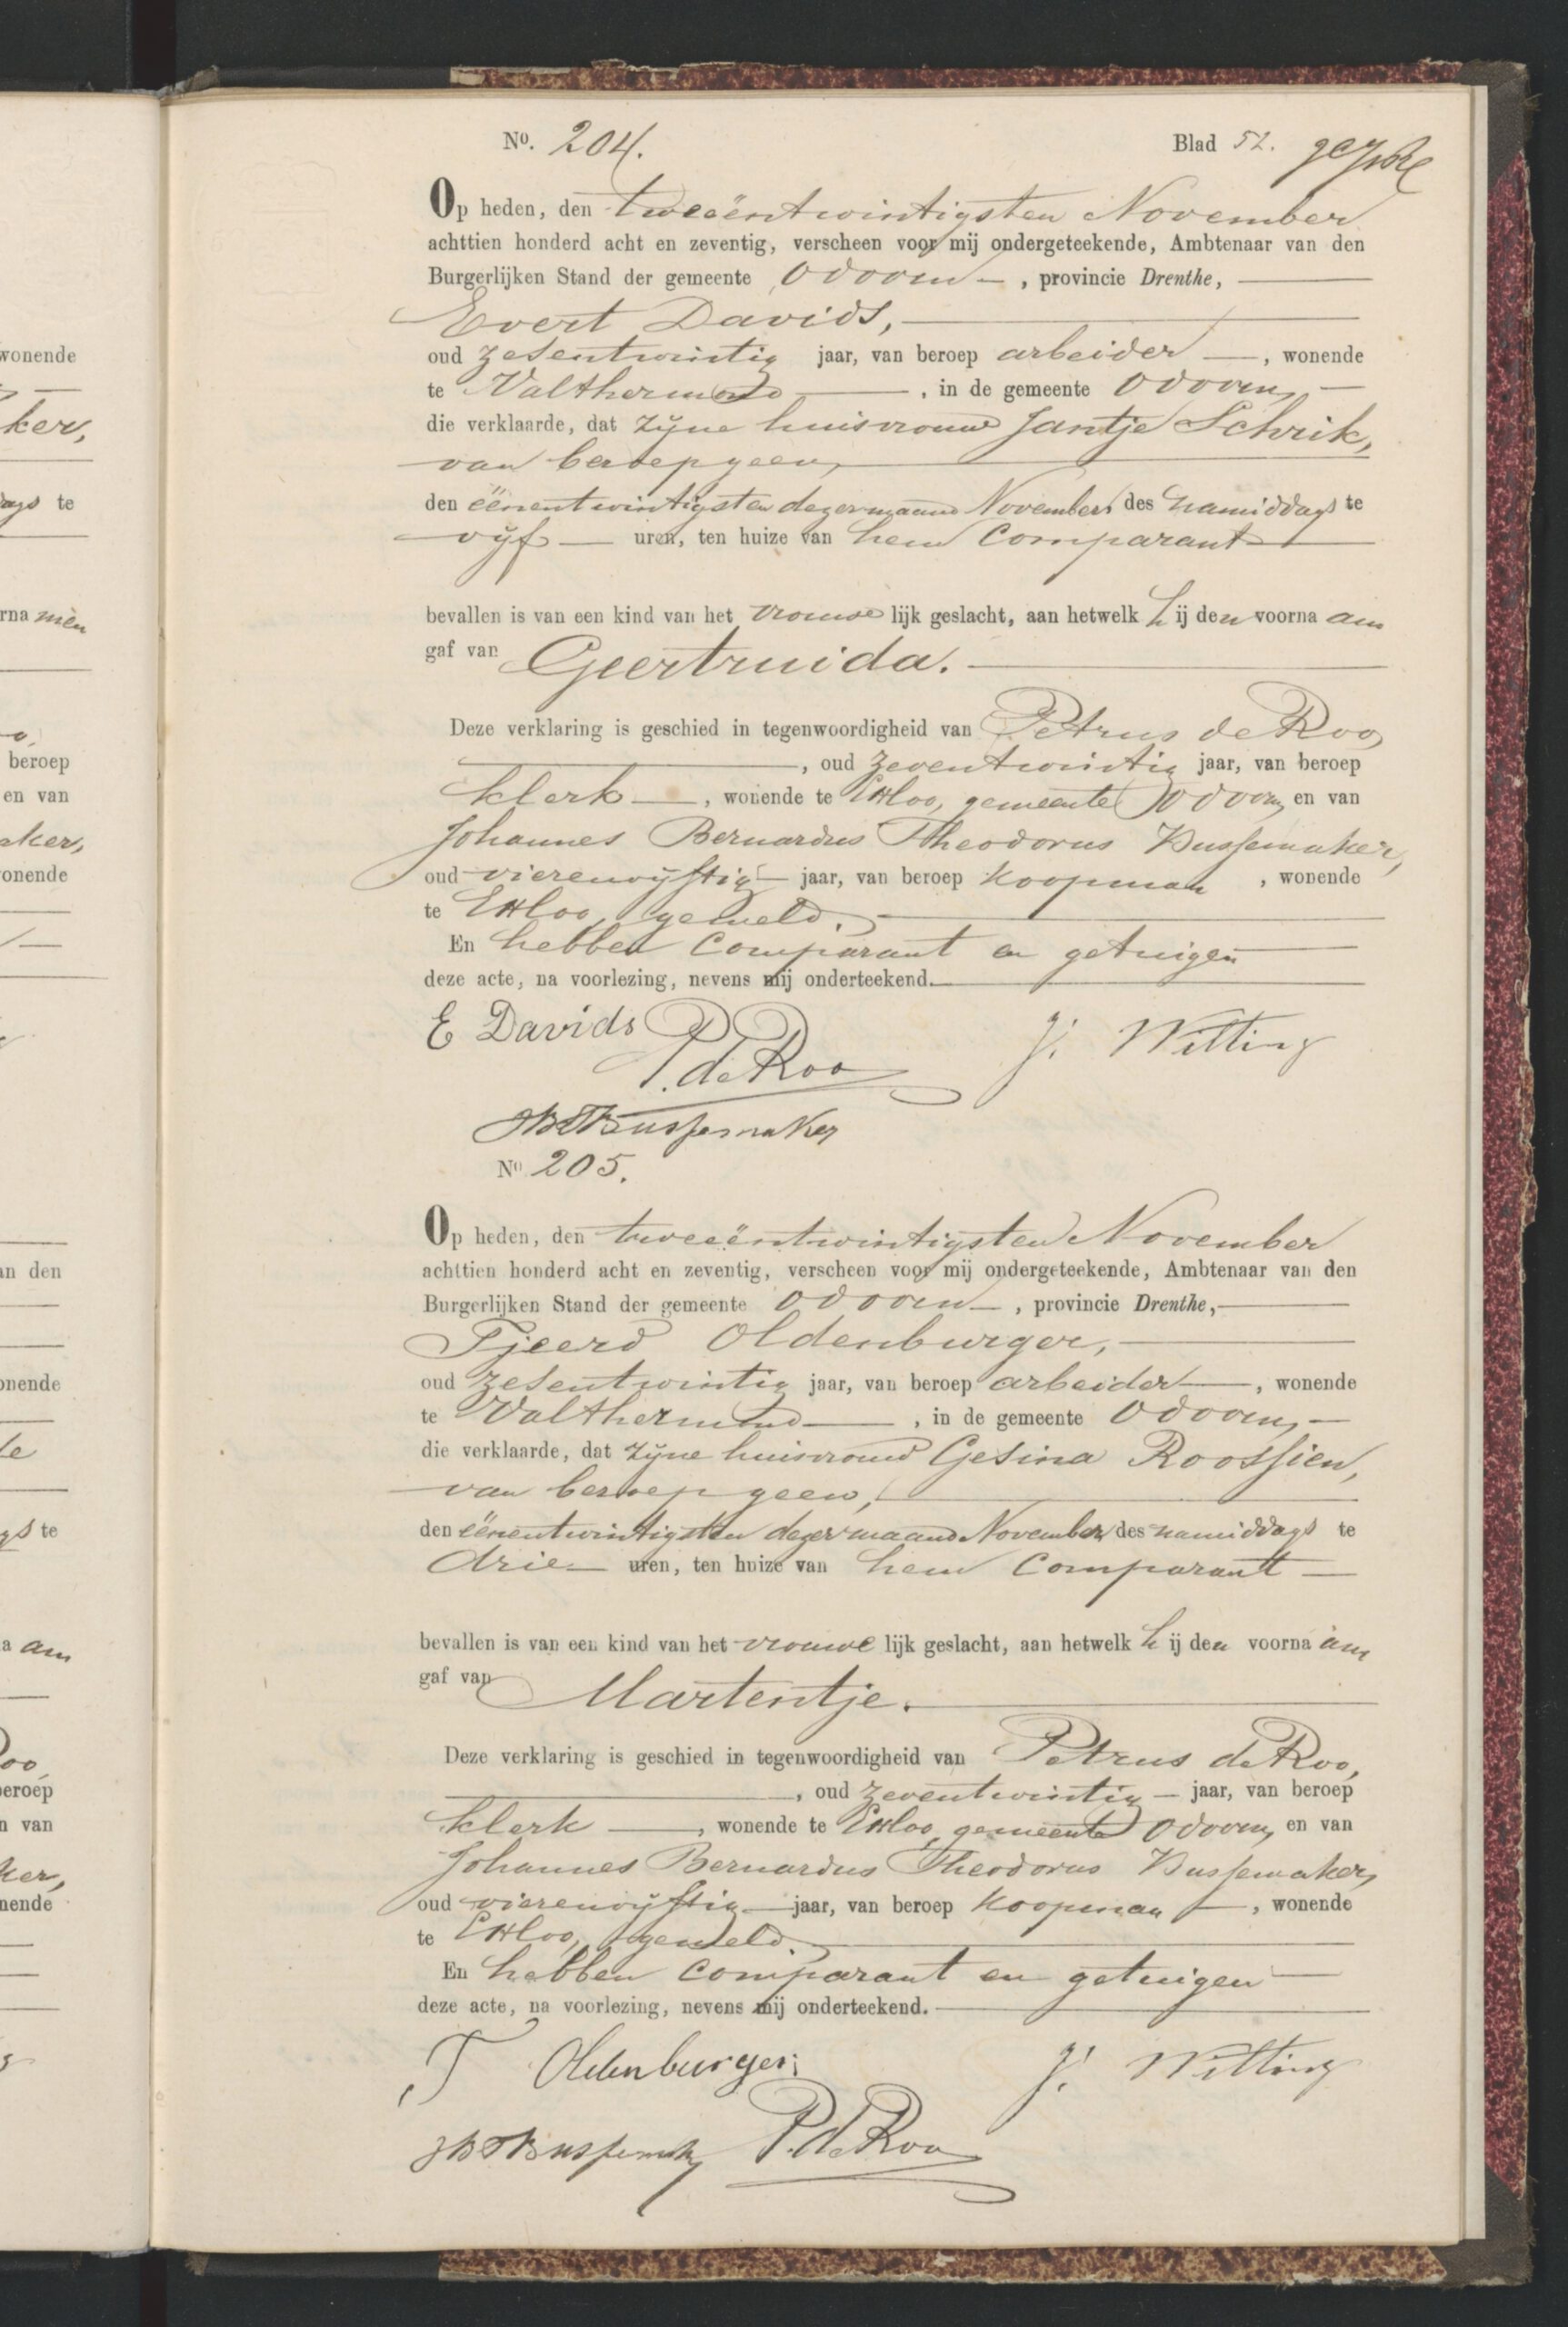 No. 204.
Blad 52.
Op heden, den tweeëntwintigsten November
achttien honderd acht en zeventig, verscheen voor mij ondergeteekende, Ambtenaar van den
Burgerlijken Stand der gemeente Odoorn, provincie Drenthe,
Evert Davids,
oud zesentwintig jaar, van beroep arbeider, wonende
te Valthermond, in de gemeente Odoorn,
die verklaarde, dat zijne huisvrouw Jantje Schrik,
van beroep geen,
den eënentwintigsten dezer maand November des namiddags te
vijf uren, ten huize van hem Comparant
bevallen is van een kind van het vrouwelijk geslacht, aan hetwelk hij den voornaam
gaf van Geertruida.
Deze verklaring is geschied in tegenwoordigheid van Petrus de Roo,
, oud zeventwintig jaar, van beroep
klerk, wonende te Exloo, gemeente Odoorn, en van
Johannes Bernardus Theodorus Bussemaker,
oud vierenvijftig jaar, van beroep koopman, wonende
te Exloo, gemeld.
En hebben Comparant en getuigen
deze acte, na voorlezing, nevens mij onderteekend.
E Davids
J. Wilting
P. de Roo
JBTBussemaker
No 205.
Op heden, den tweeëntwintigsten November
achttien honderd acht en zeventig, verscheen voor mij ondergeteekende, Ambtenaar van den
Burgerlijken Stand der gemeente Odoorn, provincie Drenthe,
Tjeerd Oldenburger,
oud zesentwintig jaar, van beroep arbeider, wonende
te Valthermond, in de gemeente Odoorn,
die verklaarde, dat zijne huisvrouw Gesina Roossien,
van beroep geen,
den eënentwintigsten dezer maand November des namiddags te
drie uren, ten huize van hem Comparant
bevallen is van een kind van het vrouwelijk geslacht, aan hetwelk hij den voornaam
gaf van Martentje.
Deze verklaring is geschied in tegenwoordigheid van Petrus de Roo,
, oud zeventwintig jaar, van beroep
klerk, wonende te Exloo, gemeente Odoorn, en van
Johannes Bernardus Theodorus Bussemaker,
oud vierenvijftig jaar, van beroep koopman, wonende
te Exloo, gemeld.
En hebben comparant en getuigen
deze acte, na voorlezing, nevens mij onderteekend.
T Oldenburger
J. Wilting
JBTBussemaker P. de Roo